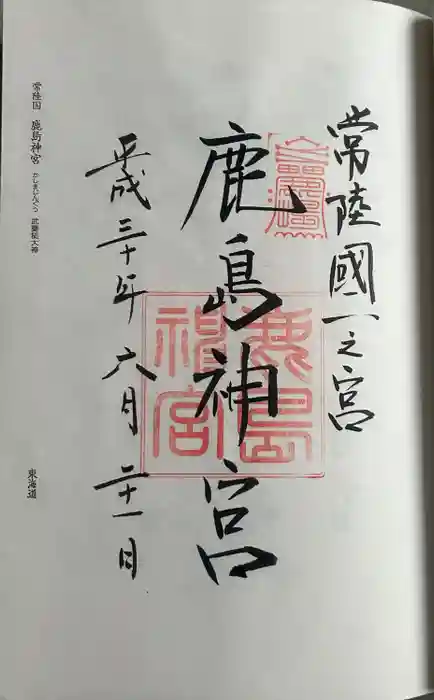 常陸國一之宮
鹿島神宮
平成三十年六月二十一日
鹿島神宮
常陸国 鹿島神宮 かしまじんぐう 武甕槌大神
東海道